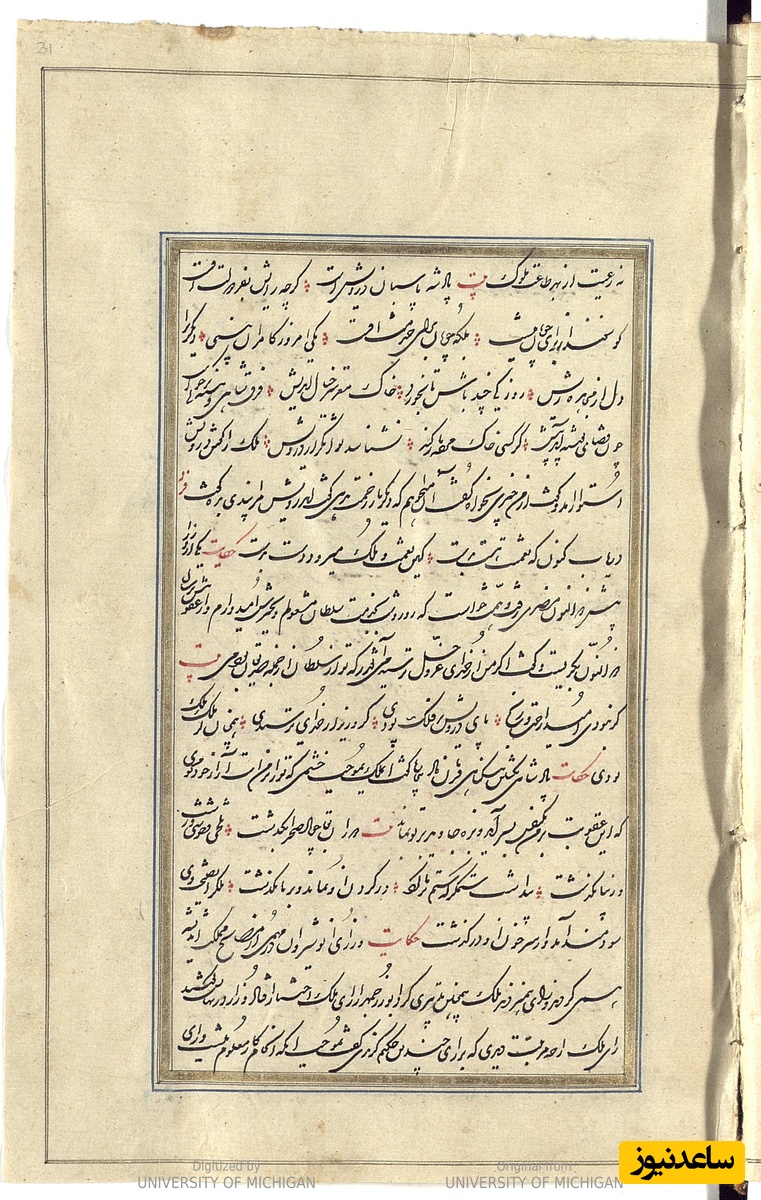 31
نه رعیت از بهر طاعت ملوک بیت پادشه پاسبان درویش است گرچه رامش بفر دولت اوست
گوسفند از برای چوپان نیست بلکه چوپان برای خدمت اوست یکی امروز کامران بینی دیگری را
دل از مجاهده ریش روزکی چند باش تا بخورد خاک مغز سر خیال اندیش فرق شاهی و بندگی برخاست
چون قضای نبشته آمد پیش گر کسی خاک مرده باز کند نشناسد توانگر از درویش ملک را گفتن درویش
استوار آمد گفت از من چیزی بخواه گفت آن میخواهم که دگر بار زحمت من ندهی گفت مرا پندی بده گفت
دریاب کنون که نعمتت هست بدست کین نعمت و ملک میرود دست بدست حکایت یکی از وزرا
پیش ذوالنون مصری رفت و همت خواست که روز و شب بخدمت سلطان مشغولم و بخیرش امیدوارم و از عقوبتش ترسان
ذوالنون بگریست و گفت اگر من از خدای عز و جل ترسیدمی که تو از سلطان از جمله صدیقان بودمی بیت
گر نبودی امید راحت و رنج پای درویش بر فلک بودی گر وزیر از خدای ترسیدی همچنان کز ملک ملک
بودی حکایت پادشاهی بکشتن بیگناهی فرمان داد گفت ای ملک بموجب خشمی که ترا بر من است آزار خود مجوی
که این عقوبت بر من بیک نفس بسر آید و بزه جاوید بر تو بماند دوران بقا چو باد صحرا بگذشت تلخی و خوشی و زشت
و زیبا بگذشت پنداشت ستمگر که ستم بر ما کرد در گردن او بماند و بر ما بگذشت ملک را نصیحت وی
سودمند آمد و از سر خون او درگذشت حکایت وزرای انوشیروان در مهمی از مصالح مملکت اندیشه
همی کردند و رای همی زدند ملک همچنین تدبیری کرد بوزرجمهر را رای ملک اختیار افتاد وزرا در نهانش گفتند
رای ملک را چه مزیت دیدی که بر رای چندین حکیم گزیدی گفت بموجب آنکه انجام کار معلوم نیست و رای
Digitized by
UNIVERSITY OF MICHIGAN
Original from
UNIVERSITY OF MICHIGAN
ساعدنیوز